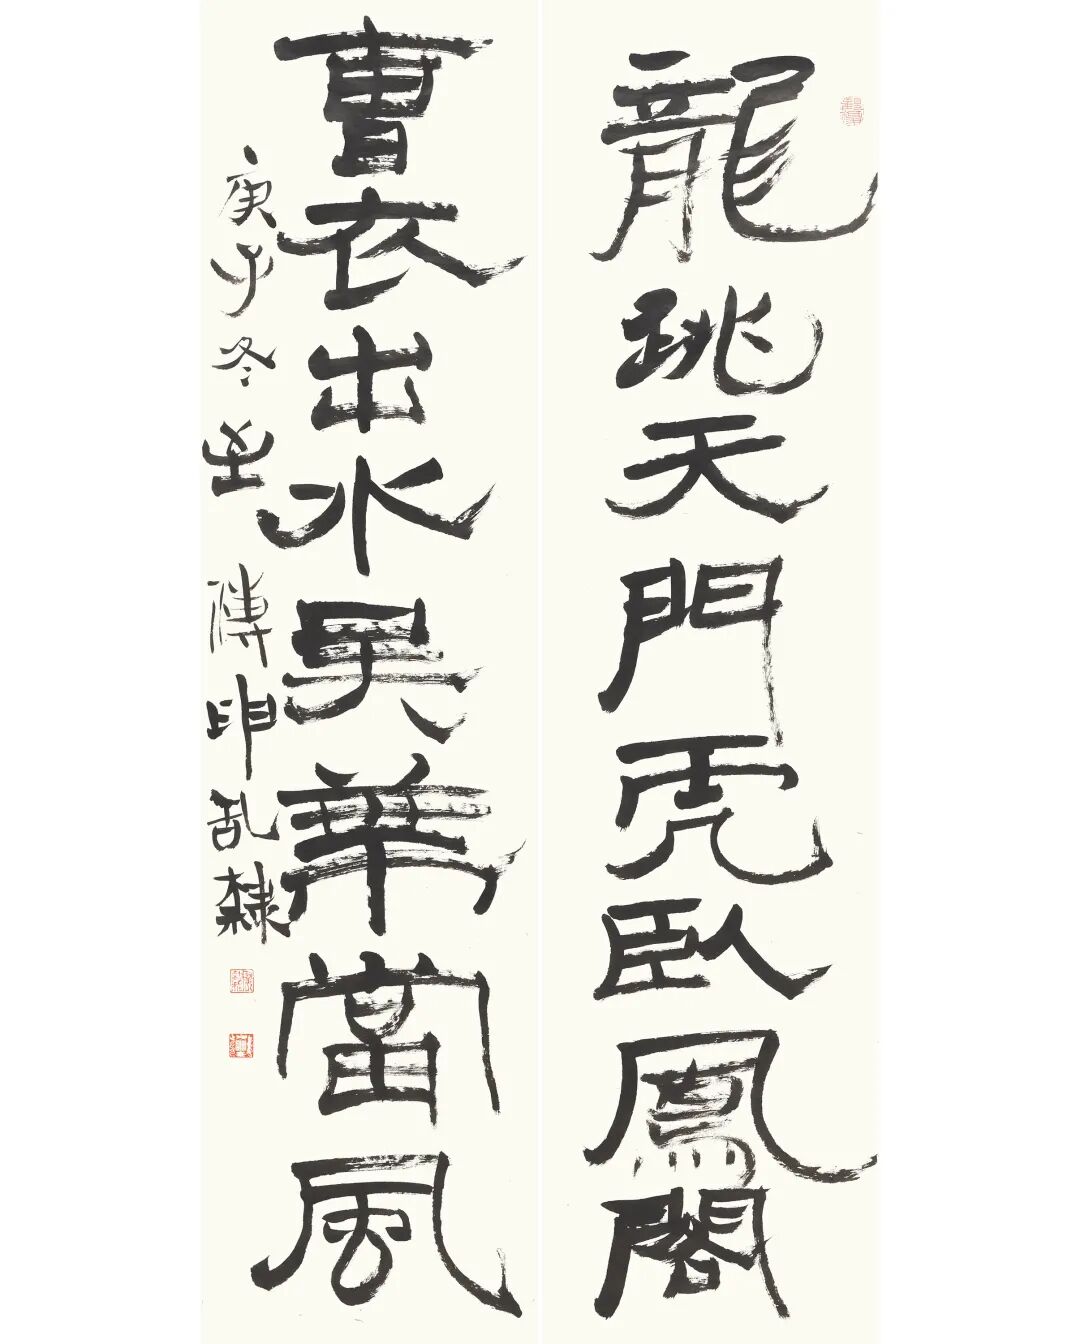 龍跳天門虎臥鳳閣
曹衣出水吴帶當風
庚子冬至 傅申乱隸